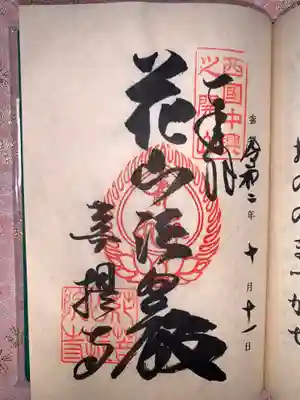 奉拝
令和二年十月十一日
西国中興
之開山
花山法皇殿
菩提寺